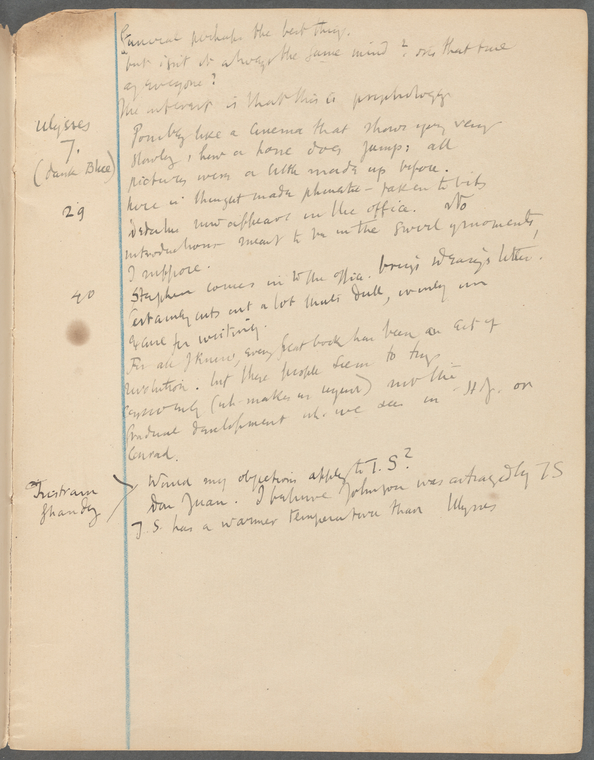 Funeral perhaps the best thing.
but isn't it always the same mind? is that true
of everyone?
The interest is that this is psychology
Ulysses
7.
(Dark Blue)
Possibly like a cinema that shows you very
slowly, how a horse does jump; all
pictures were a little made up before.
Here is thought made phonetic - taken to bits
29
Dedalus now appears in the office. No
introductions meant to be in the swirl of moments,
I suppose.
40
Stephen comes in to the office. brings Deasy's letter.
Certainly cuts out a lot that's dull, if only in
care for writing.
For all I know, every great book has been an act of
revolution. but these people seem to try
consciously (wh. makes us urgent) not the
Gradual development wh. we see in H J. or
Conrad.
Tristram
Shandy
Would my objections apply to T. S?
Don Juan. I believe Johnson was outraged by T S
T. S. has a warmer temperature than Ulysses